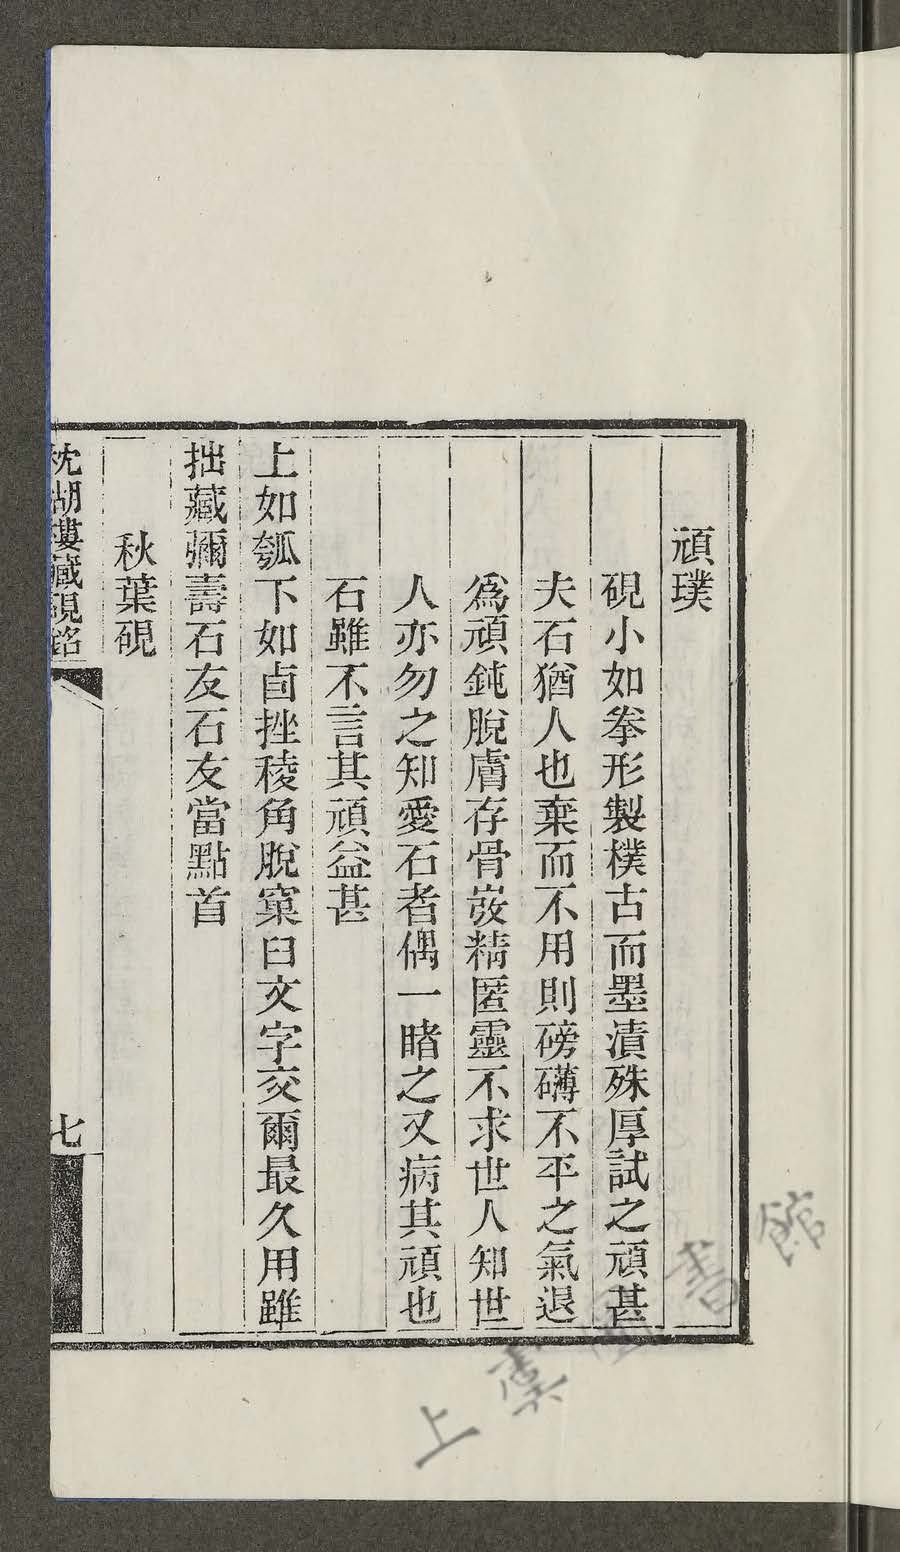 頑璞
硯小如拳形製樸古而墨漬殊厚試之頑甚
夫石猶人也棄而不用則磅礴不平之氣退
爲頑鈍脫膚存骨斂精匿靈不求世人知世
人亦勿之知愛石者偶一睹之又病其頑也
石雖不言其頑益甚
上如瓠下如卣挫稜角脫窠臼文字交爾最久用雖
拙藏彌壽石友石友當點首
秋葉硯
枕湖樓藏硯銘
七
上虞圖書館